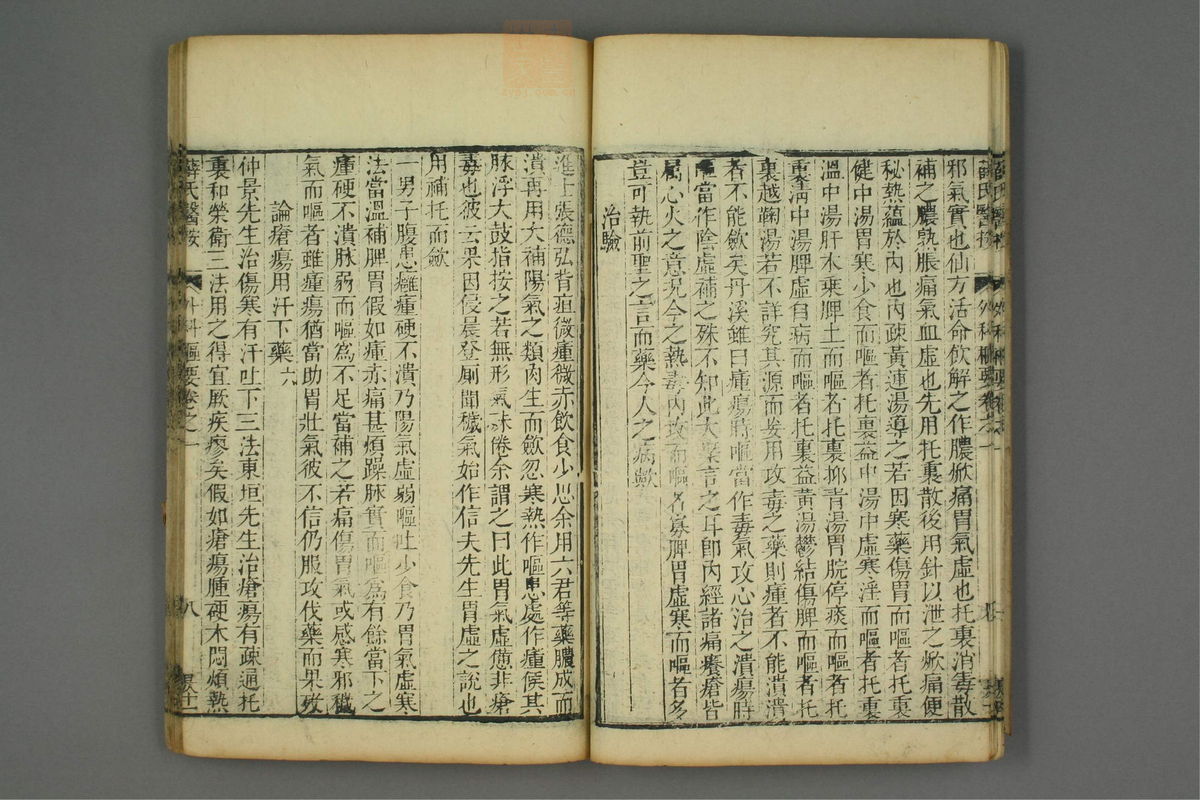 邪氣實也仙方活命飲解之作膿焮痛胃氣虛也托裏消毒散
補之膿熟脹痛氣血虛也先用托裏散後用針以泄之焮痛便
秘熱蘊於內也內疎黃連湯導之若因寒藥傷胃而嘔者托裏
健中湯胃寒少食而嘔者托裏益中湯中虛寒淫而嘔者托裏
溫中湯肝木乗脾土而嘔者托裏抑青湯胃脘停痰而嘔者托
裏清中湯脾虛自病而嘔者托裏益黃湯鬱結傷脾而嘔者托
裏越鞠湯若不詳究其源而妄用攻毒之藥則腫者不能潰潰
者不能斂矣丹溪雖曰腫瘍時嘔當作毒氣攻心治之潰瘍時
嘔當作陰虛補之殊不知此大槩言之耳卽內經諸痛癢瘡皆
屬心火之意況今之熱毒內攻而嘔者寡脾胃虛寒而嘔者多
豈可執前聖之言而藥今人之病歟
治驗
進士張德弘背疽微腫微赤飲食少思余用六君等藥膿成而
潰再用大補陽氣之類肉生而斂忽寒熱作嘔患處作腫候其
脉浮大鼓指按之若無形氣殊倦余謂之曰此胃氣虛憊非瘡
毒也彼云果因侵晨登厠聞穢氣始作信夫先生胃虛之說也
用補托而斂
一男子腹患癰腫硬不潰乃陽氣虛弱嘔吐少食乃胃氣虛寒
法當溫補脾胃假如腫赤痛甚煩躁脉實而嘔爲有餘當下之
腫硬不潰脉弱而嘔爲不足當補之若痛傷胃氣或感寒邪穢
氣而嘔者雖腫瘍猶當助胃壯氣彼不信仍服攻伐藥而果歿
論瘡瘍用汗下藥 六
仲景先生治傷寒有汗吐下三法東垣先生治瘡瘍有疎通托
裏和榮衛三法用之得宜厥疾瘳矣假如瘡瘍腫硬木悶煩熱
薛氏醫按 外科樞要卷之一 八